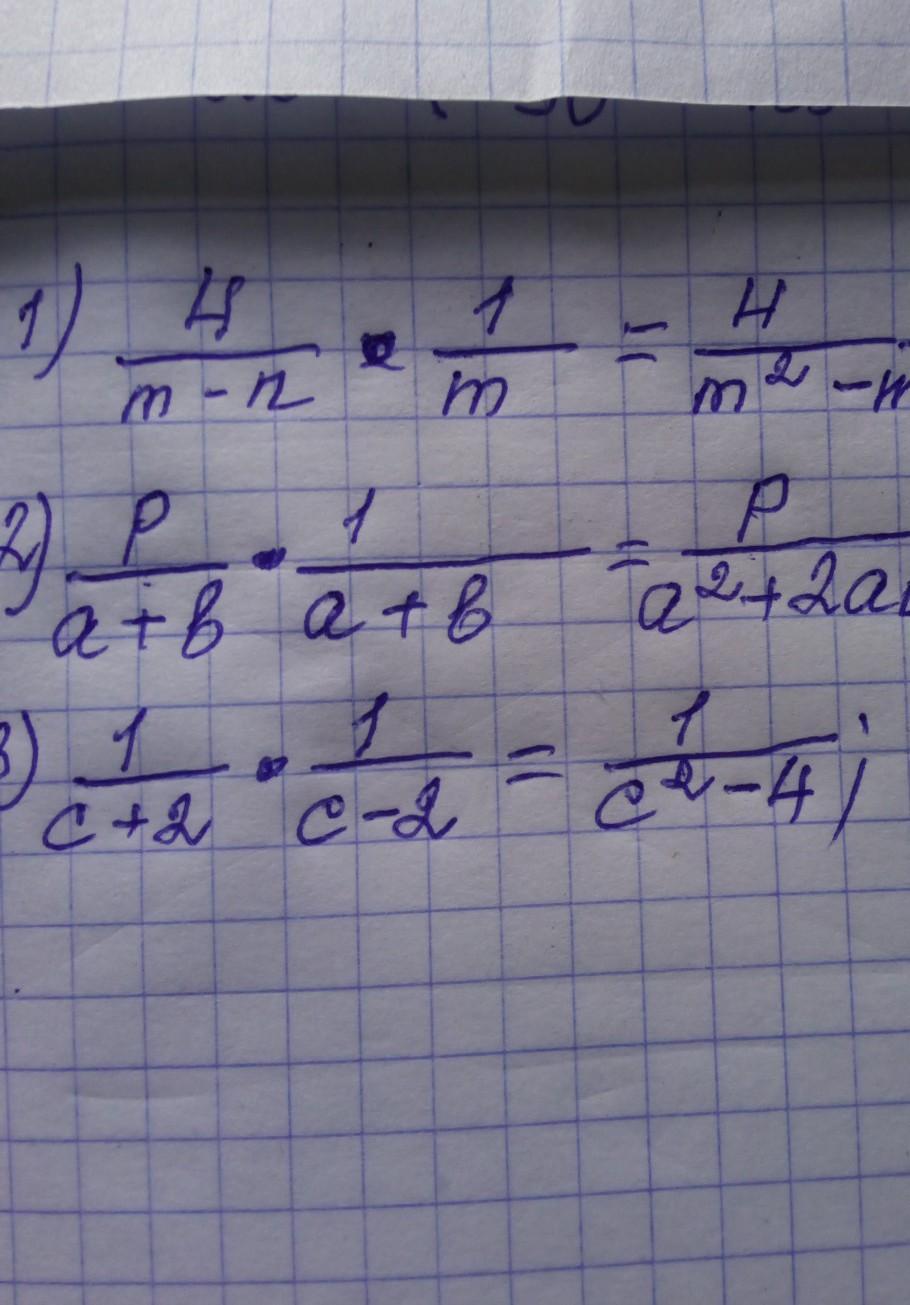 1) 4/(m - n) · 1/m = 4/(m² - m
2) p/(a + b) · 1/(a + b) = p/(a² + 2a
3) 1/(c + 2) · 1/(c - 2) = 1/(c² - 4);